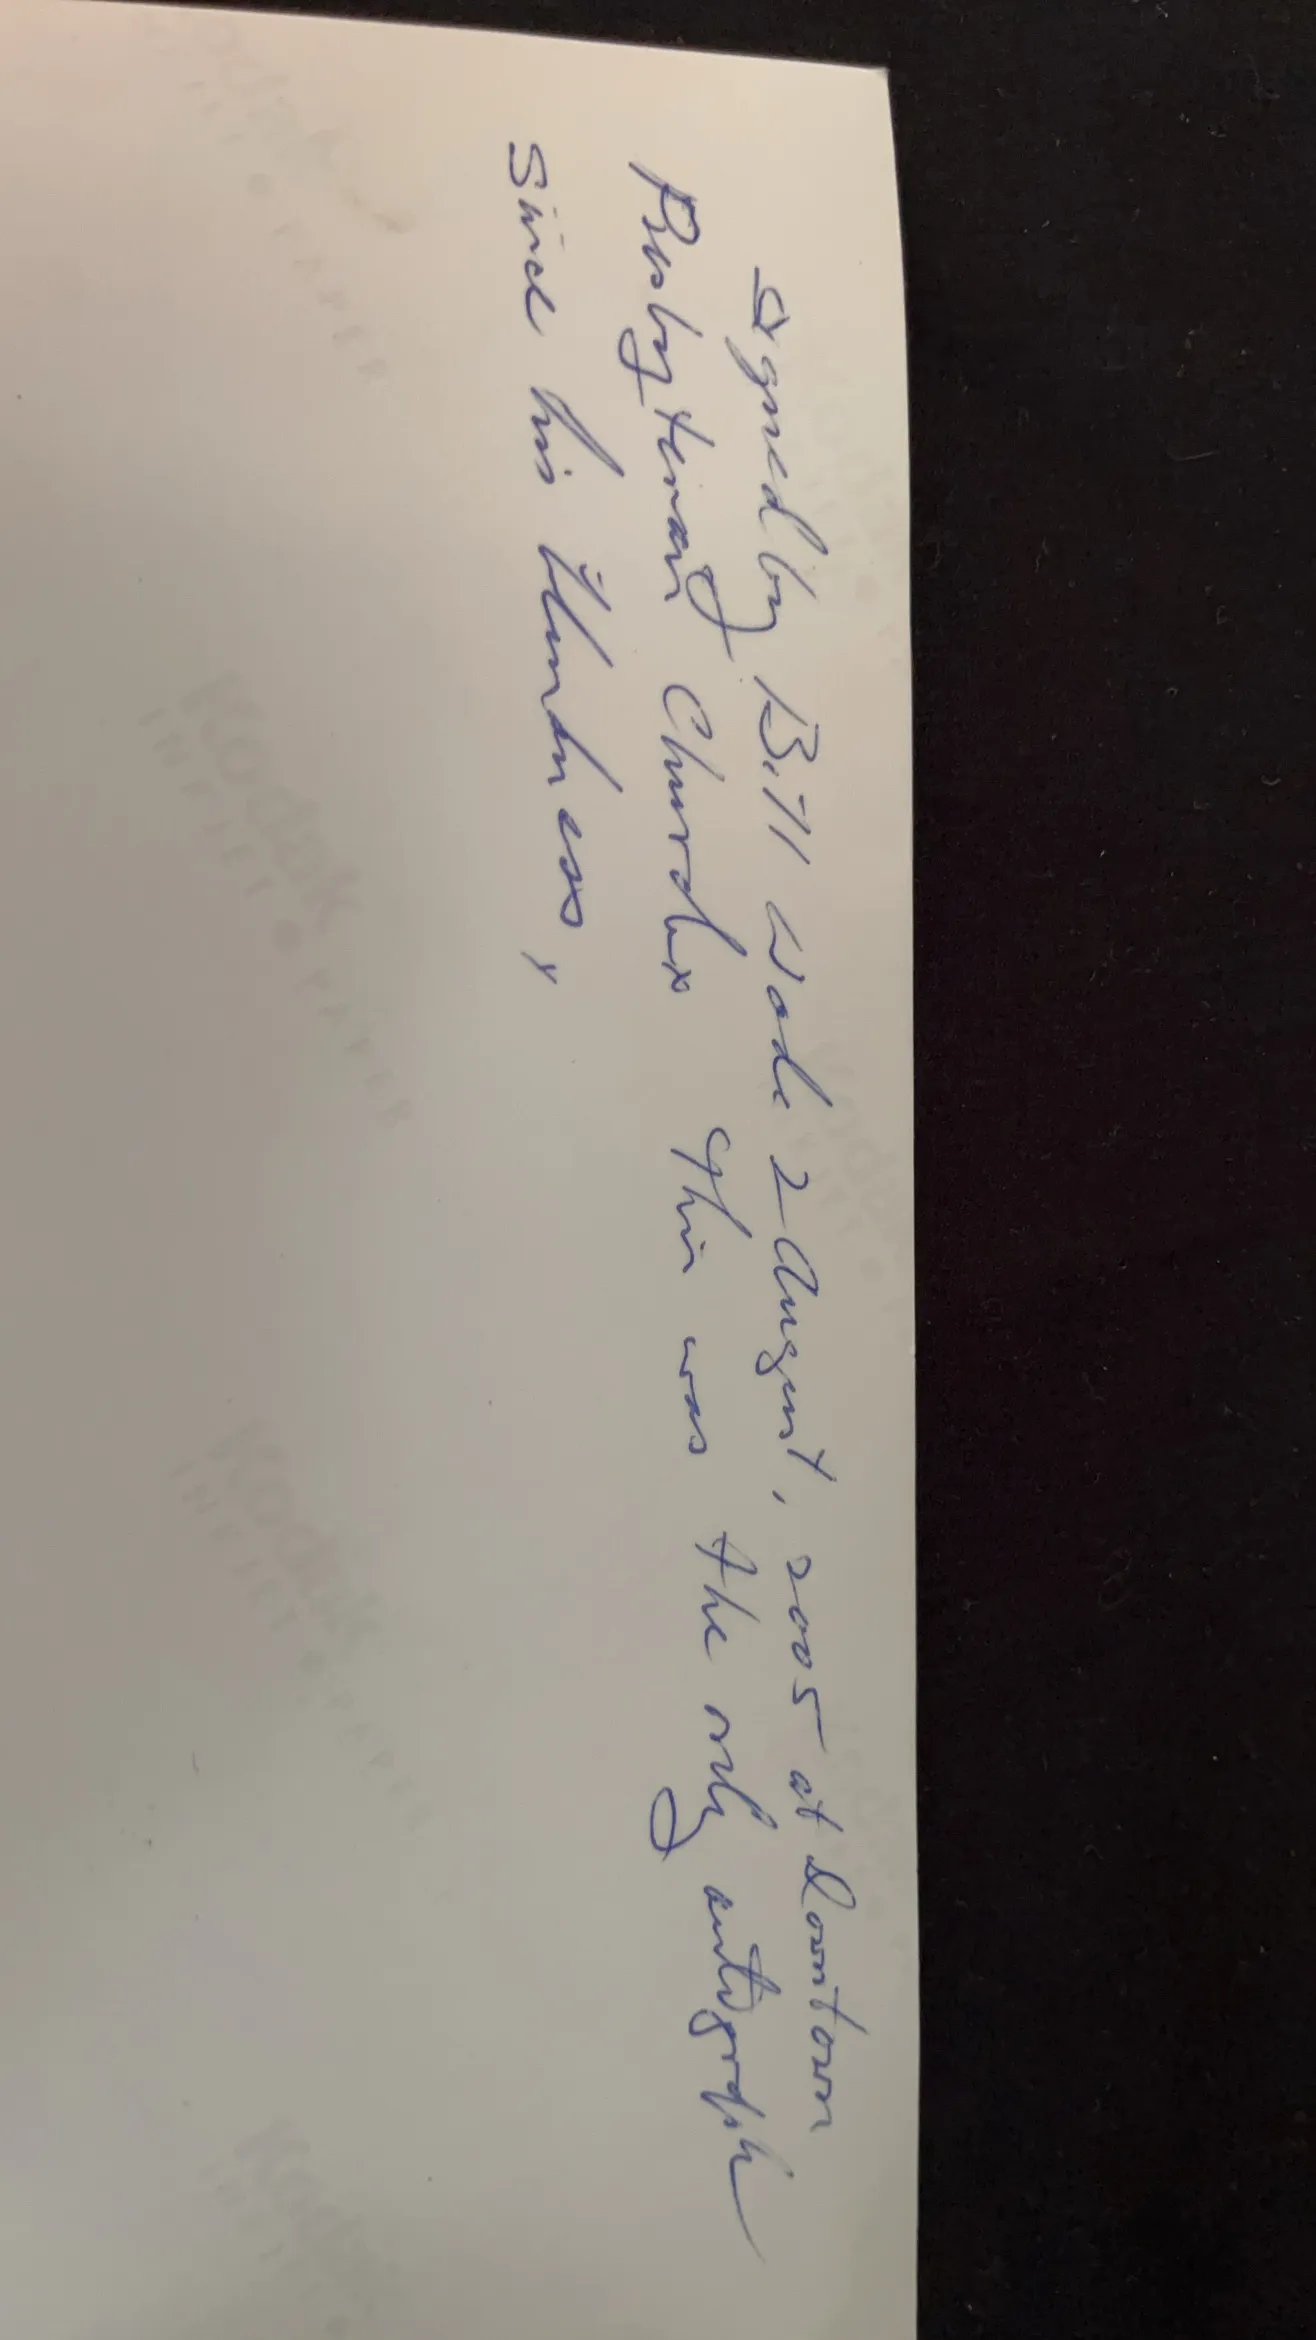 Signed by Bill Wade 2 August, 2005 at Downtown
Presbyterian Church. This was the only autograph
since his blindness,
Kodak
Kodak
Kodak